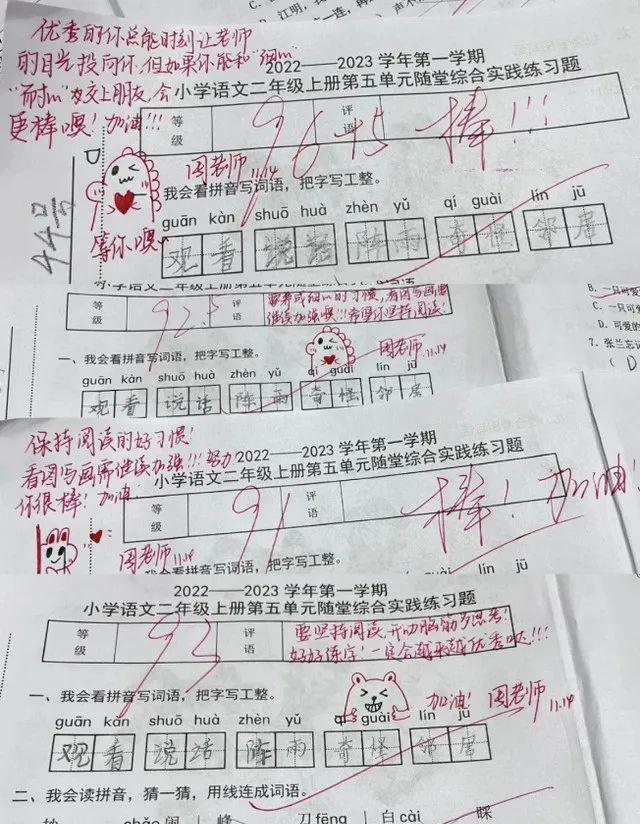 C.
B. 江明,我
优秀的你总能时刻让老师
的目光投向你,但如果你能和“细心”
“耐心”交上朋友,会
更棒噢!加油!!!
2022——2023 学年第一学期
小学语文二年级上册第五单元随堂综合实践练习题
等级
96.75
评语
棒!!!
周老师 11.14
44号
等你噢
我会看拼音写词语,把字写工整。
guān kàn shuō huà zhèn yǔ qí guài lín jū
观看 说话 阵雨 奇怪 邻居
等级
92.5
评语
要养成细心的习惯,看图写画
继续加强噢!!!希望你坚持阅读!
周老师 11.14
一、我会看拼音写词语,把字写工整。
guān kàn shuō huà zhèn yǔ qí guài lín jū
观看 说话 阵雨 奇怪 邻居
B. 一只可爱
C. 一只可
D. 可爱的
7. 张兰忘记
( D
保持阅读的好习惯!
看图写画需继续加强!!!努力
你很棒!加油!
2022——2023 学年第一学期
小学语文二年级上册第五单元随堂综合实践练习题
等级
91
评语
棒!加油!
周老师 11.14
我会看拼音写词语,把字写工整。
lín jū
2022——2023 学年第一学期
小学语文二年级上册第五单元随堂综合实践练习题
等级
93
评语
要坚持阅读,开动脑筋多思考!
好好练字!一定会越来越优秀哒!!!
加油!周老师 11.14
一、我会看拼音写词语,把字写工整。
guān kàn shuō huà zhèn yǔ qí guài lín jū
观看 说话 阵雨 奇怪 邻居
二、我会读拼音,猜一猜,用线连成词语。
chǎo 闹 峰 刀 fēng 白 cài 睬